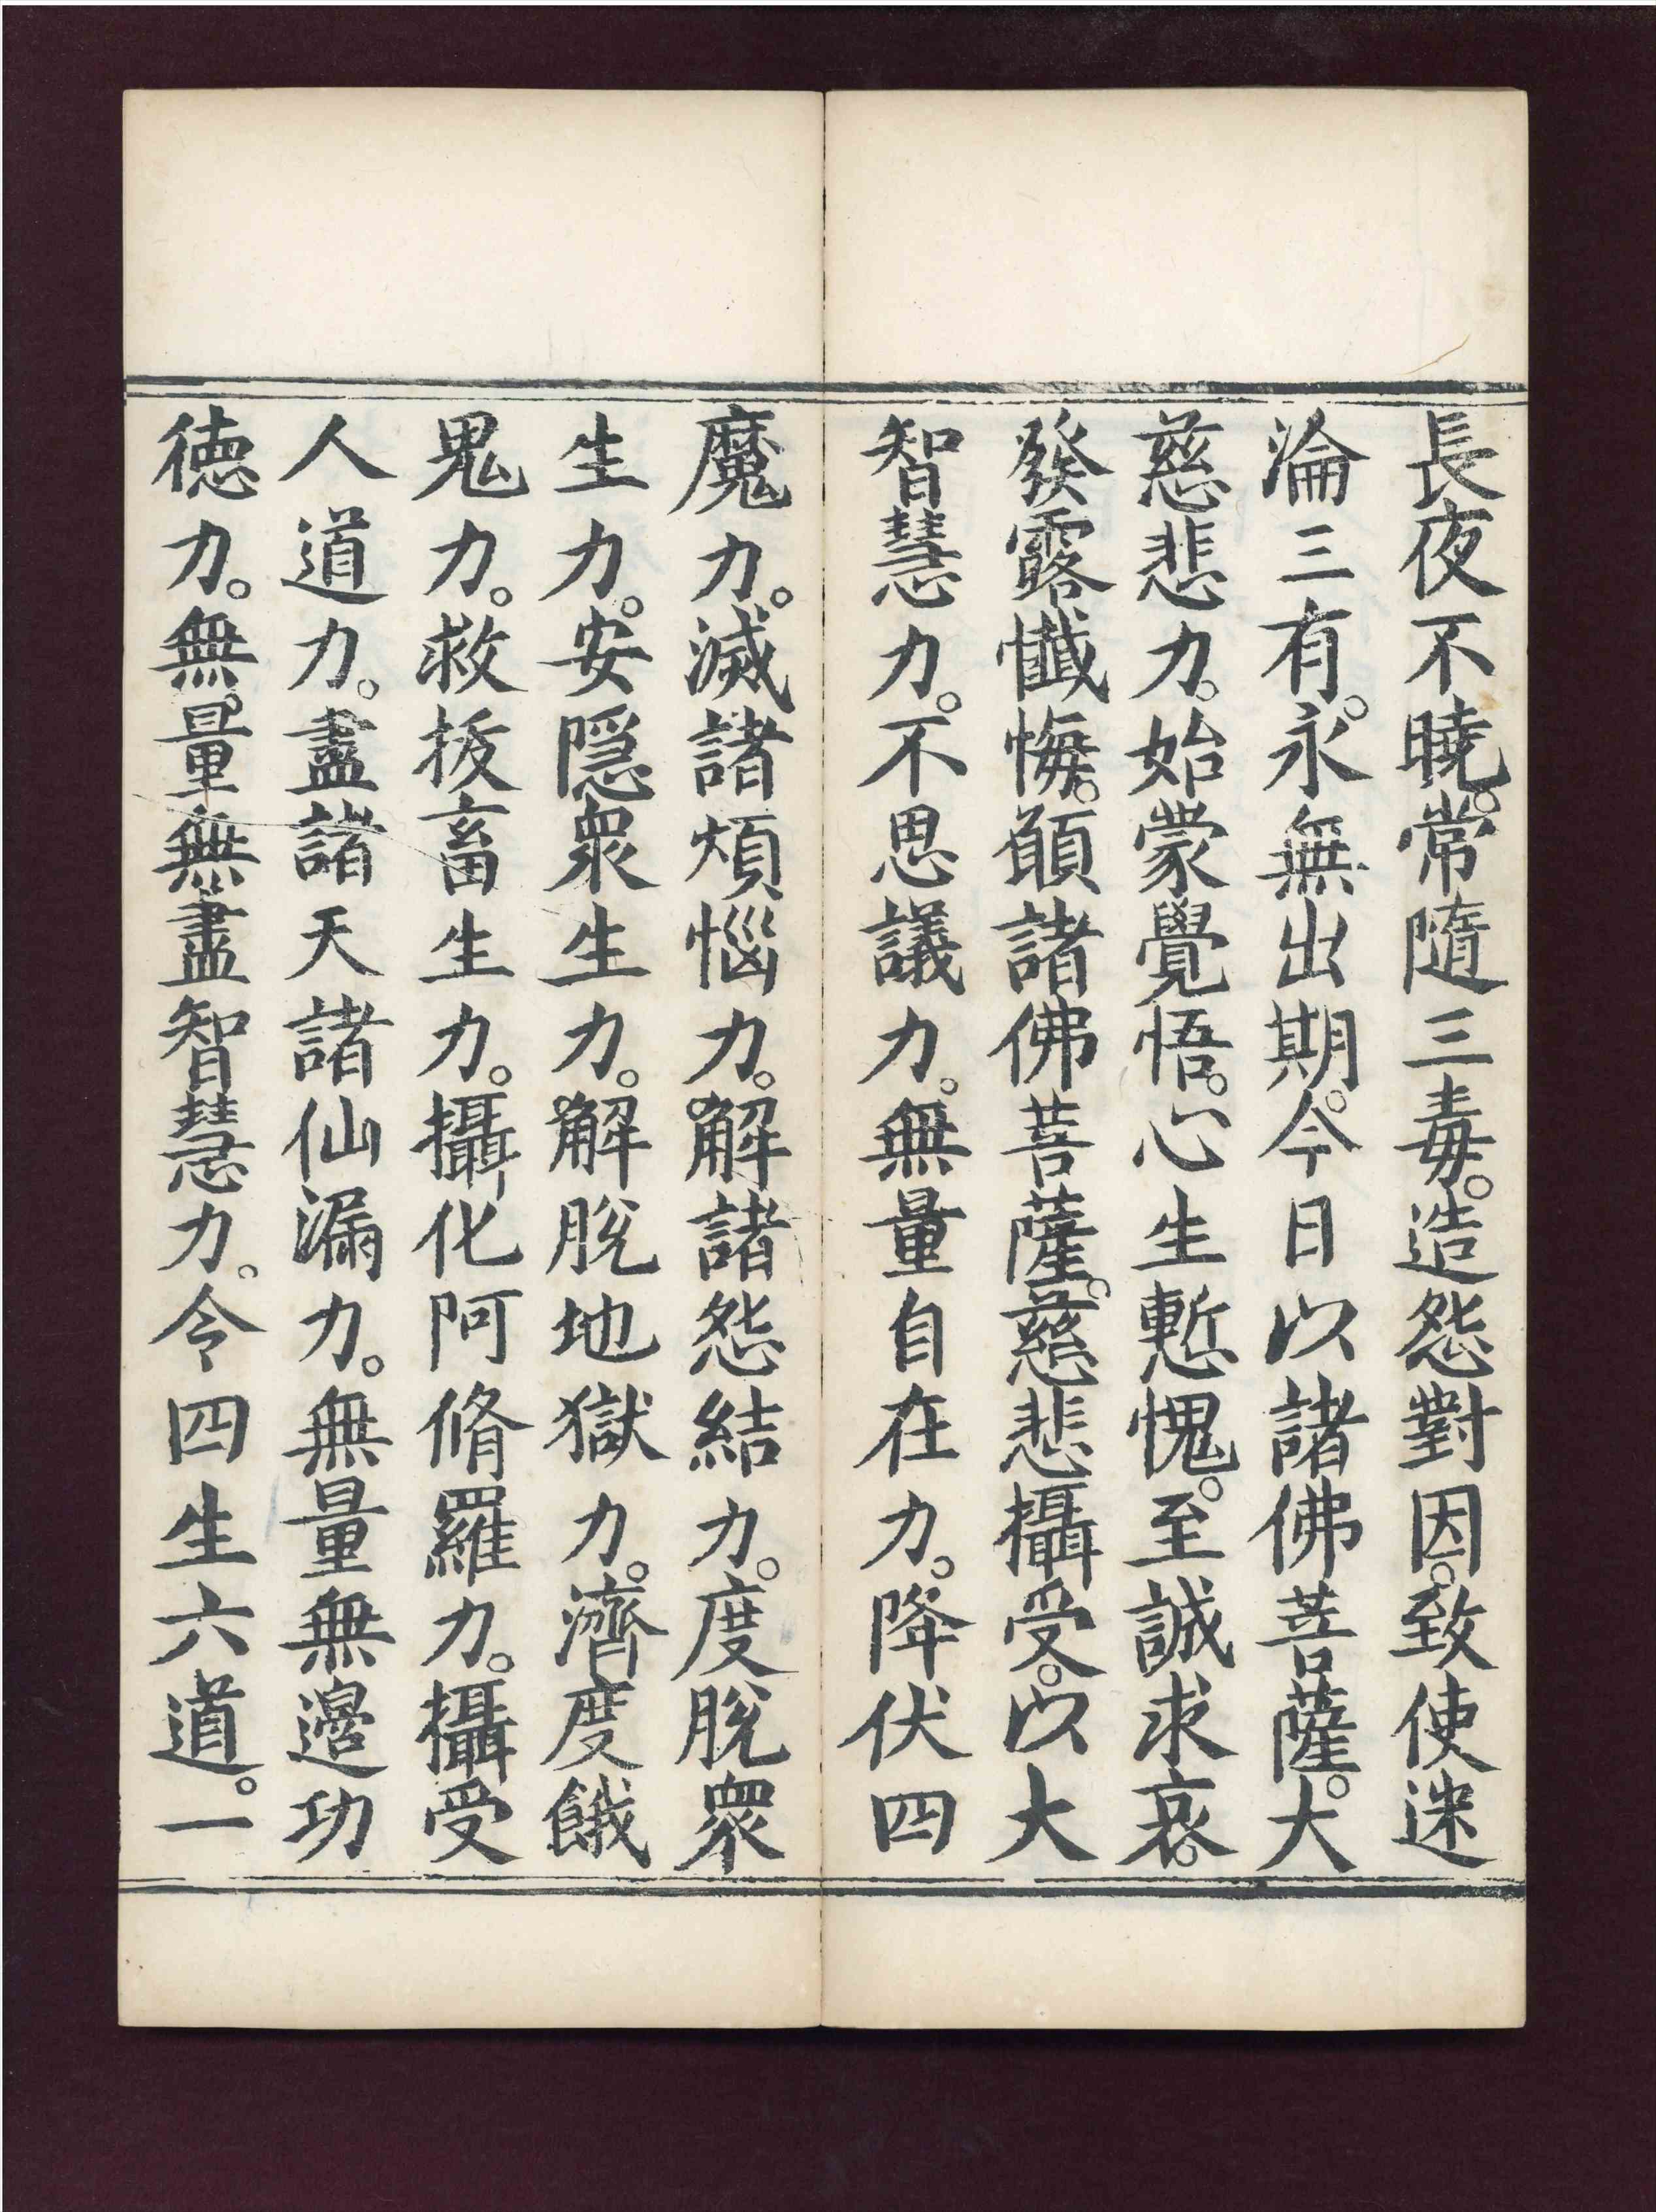 長夜不曉。常隨三毒。造怨對因。致使迷
淪三有。永無出期。今日以諸佛菩薩。大
慈悲力。始蒙覺悟。心生慙愧。至誠求哀。
發露懺悔。願諸佛菩薩。慈悲攝受。以大
智慧力。不思議力。無量自在力。降伏四
魔力。滅諸煩惱力。解諸怨結力。度脫衆
生力。安隱衆生力。解脫地獄力。濟度餓
鬼力。救拔畜生力。攝化阿脩羅力。攝受
人道力。盡諸天諸仙漏力。無量無邊功
德力。無量無盡智慧力。令四生六道。一